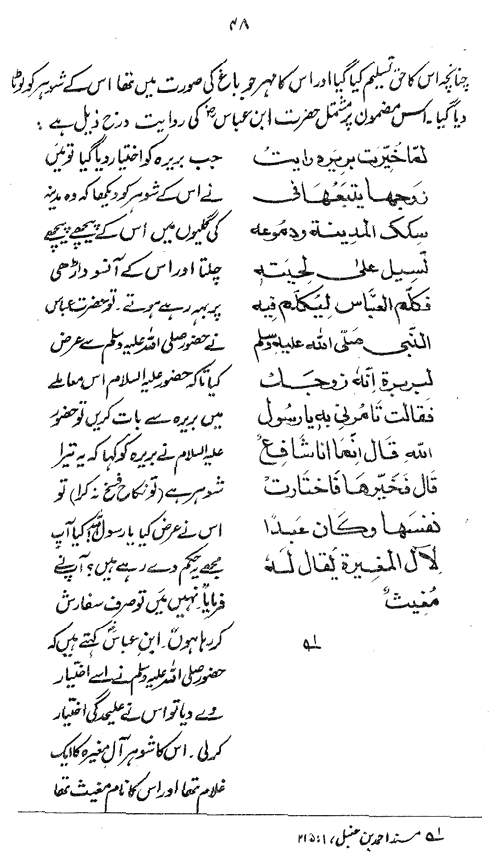 ۴۸
چنانچہ اس کا حق تسلیم کیا گیا اور اس کا مہر جو باغ کی صورت میں تھا اس کے شوہر کو لوٹا
دیا گیا۔ اس مضمون پر مشتمل حضرت ابن عباسؓ کی روایت درج ذیل ہے :
لمّا خیّرت بریرہ رایت
زوجها یتبعها فی
سکک المدینة ودموعه
تسیل علیٰ لحیته
فکلّم العبّاس لیکلّم فیه
النبّی صلّی اللہ علیہ وسلم
لبریرة انّه زوجك
فقالت تامرنی به یا رسول
اللہ قال انّما انا شافعٌ
قال فخیّرها فاختارت
نفسها وکان عبدًا
لآل المغیرة یقال له
مغیثٌ
۱ے
جب بریرہ کو اختیار دیا گیا تو میں
نے اس کے شوہر کو دیکھا کہ وہ مدینہ
کی گلیوں میں اس کے پیچھے پیچھے
چلتا اور اس کے آنسو داڑھی
پر بہہ رہے ہوتے۔ تو حضرت عباس
نے حضور صلی اللہ علیہ وسلم سے عرض
کیا تاکہ حضور علیہ السلام اس معاملے
میں بریرہ سے بات کریں تو حضور
علیہ السلام نے بریرہ کو کہا کہ یہ تیرا
شوہر ہے (تو نکاح فسخ نہ کرا) تو
اس نے عرض کیا یا رسول اللہؐ! کیا آپ
مجھے یہ حکم دے رہے ہیں؟ آپ نے
فرمایا نہیں میں تو صرف سفارش
کر رہا ہوں۔ ابن عباسؓ کہتے ہیں کہ
حضور صلی اللہ علیہ وسلم نے اسے اختیار
دے دیا تو اس نے علیحدگی اختیار
کر لی۔ اس کا شوہر آل مغیرہ کا ایک
غلام تھا اور اس کا نام مغیث تھا
۱ے مسند احمد بن حنبل، ۱:۲۱۵